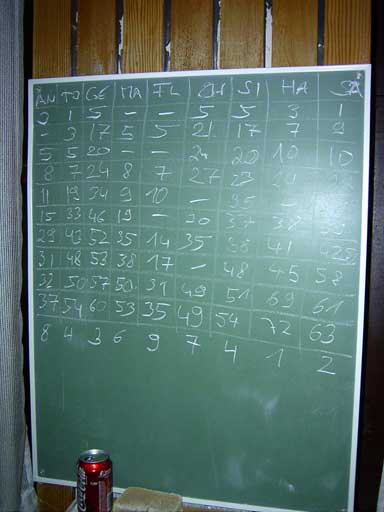 AN TO GE MA FL CH SI HA SA
0 1 5 - - 5 5 3 1
- 3 17 5 5 21 17 7 9
5 5 20 - - 24 20 10 10
8 7 24 8 7 27 23
11 19 34 9 10 - 35 -
15 33 46 19 - 30 37 38
29 43 52 35 14 35 38 41
31 48 53 38 17 - 48 45 58
32 50 57 50 31 49 51 69 61
37 54 60 53 35 49 54 72 63
8 4 3 6 9 7 4 1 2
Coca-Cola